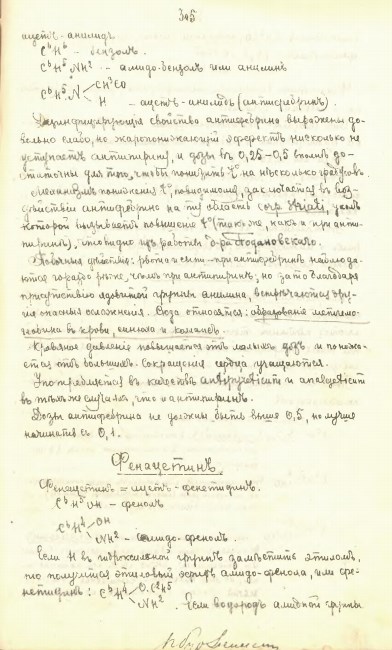 305
ацетъ-анилидъ
C⁶H⁶ – бензолъ.
C⁶H⁵NH² – амидо-бензолъ или анилинъ
C⁶H⁵N CH³CO
H – ацетъ-анилидъ (антифебринъ).
Дезинфецирующія свойства антифебрина выражены до-
вольно слабо, но жаропонижающій эффектъ нисколько не
уступаетъ антипирину, и дозы въ 0,25–0,5 вполнѣ до-
статочны для того, чтобы понизить t° на нѣсколько градусовъ.
Механизмъ пониженія t° повидимому, заключается въ воз-
дѣйствіи антифебрина на ту область corp. striati, уколъ
которой вызываетъ повышеніе t° (такъ же, какъ и при анти-
пиринѣ), что видно изъ работы д-ра
Побочныя дѣйствія: рвота и сыпь – при антифебринѣ наблюда-
ются гораздо рѣже, чѣмъ при антипиринѣ; но за то благодаря
присутствію ядовитой группы анилина, встрѣчаются дру-
гія опасныя осложненія. Сюда относятся: образованіе метгемо-
глобина въ крови, и коллапсъ
Кровяное давленіе повышается отъ малыхъ дозъ и понижа-
ется отъ большихъ. Сокращенія сердца учащаются.
Употребляется въ качествѣ antipyretici и analgetici
въ тѣхъ же случаяхъ, что и антипиринъ.
Дозы антифебрина не должны быть выше 0,5, но лучше
начинать съ 0,1.
Фенацетинъ.
Фенацетинъ = ацетъ-фенетидинъ.
C⁶H⁵OH – фенолъ
C⁶H⁴ OH
NH² – амидо-фенолъ.
Если H въ гидроксильной группѣ замѣстить этиломъ,
то получится этиловый эфиръ амидо-фенола, или фе-
нетидинъ: C⁶H⁴ O.C²H⁵
NH². Если водородъ амидной группы